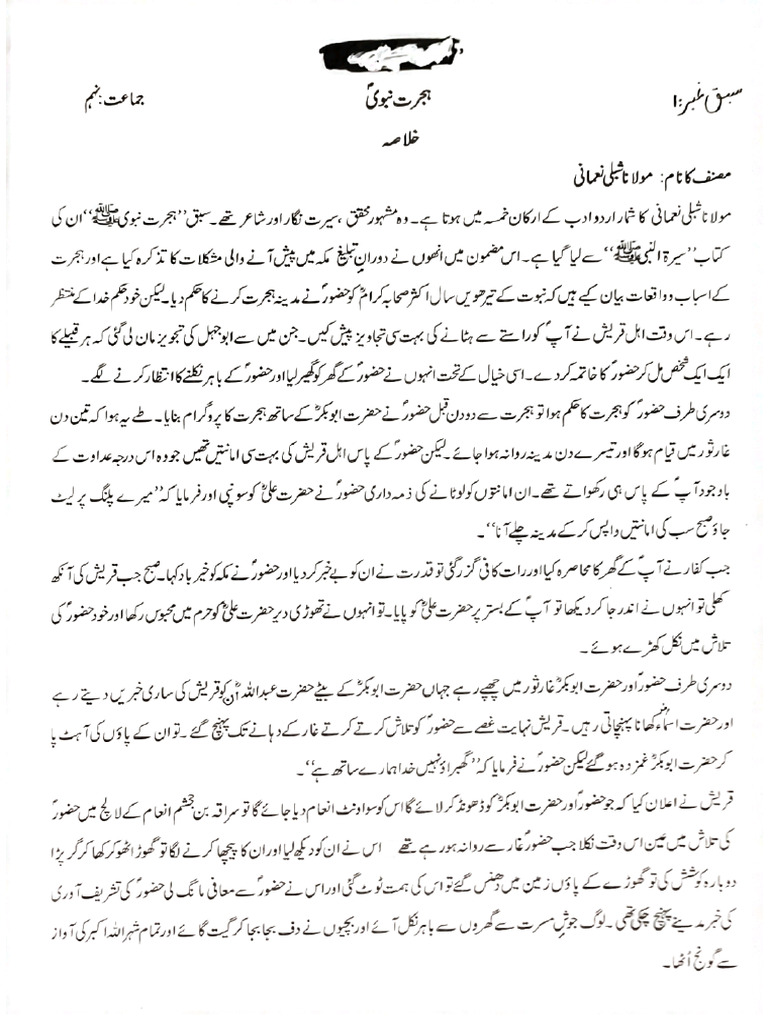 سبق نمبر:۱ ہجرت نبویؐ جماعت: نہم
خلاصہ
مصنف کا نام: مولانا شبلی نعمانی
مولانا شبلی نعمانی کا شمار اردو ادب کے ارکان خمسہ میں ہوتا ہے۔ وہ مشہور محقق، سیرت نگار اور شاعر تھے۔ سبق ”ہجرت نبوی ﷺ“ ان کی
کتاب ”سیرۃ النبی ﷺ“ سے لیا گیا ہے۔ اس مضمون میں انھوں نے دورانِ تبلیغ مکہ میں پیش آنے والی مشکلات کا تذکرہ کیا ہے اور ہجرت
کے اسباب و واقعات بیان کیے ہیں کہ نبوت کے تیرھویں سال اکثر صحابہ کرامؓ کو حضورؐ نے مدینہ ہجرت کرنے کا حکم دیا۔ لیکن خود حکم خدا کے منتظر
رہے۔ اس وقت اہل قریش نے آپؐ کو راستے سے ہٹانے کی بہت سی تجاویز پیش کیں۔ جن میں سے ابوجہل کی تجویز مان لی گئی کہ ہر قبیلے کا
ایک ایک شخص مل کر حضورؐ کا خاتمہ کر دے۔ اسی خیال کے تحت انہوں نے حضورؐ کے گھر کو گھیر لیا اور حضورؐ کے باہر نکلنے کا انتظار کرنے لگے۔
دوسری طرف حضورؐ کو ہجرت کا حکم ہوا تو ہجرت سے دو دن قبل حضورؐ نے حضرت ابوبکرؓ کے ساتھ ہجرت کا پروگرام بنایا۔ طے یہ ہوا کہ تین دن
غار ثور میں قیام ہوگا اور تیسرے دن مدینہ روانہ ہوا جائے۔ لیکن حضورؐ کے پاس اہل قریش کی بہت سی امانتیں تھیں جو وہ اس درجہ عداوت کے
باوجود آپؐ کے پاس ہی رکھواتے تھے۔ ان امانتوں کو لوٹانے کی ذمہ داری حضورؐ نے حضرت علیؓ کو سونپی اور فرمایا کہ ”میرے پلنگ پر لیٹ
جاؤ صبح سب کی امانتیں واپس کر کے مدینہ چلے آنا“۔
جب کفار نے آپؐ کے گھر کا محاصرہ کیا اور رات کافی گزر گئی تو قدرت نے ان کو بے خبر کر دیا اور حضورؐ نے مکہ کو خیر باد کہا۔ صبح جب قریش کی آنکھ
کھلی تو انہوں نے اندر جا کر دیکھا تو آپؐ کے بستر پر حضرت علیؓ کو پایا۔ تو انہوں نے تھوڑی دیر حضرت علیؓ کو حرم میں محبوس رکھا اور خود حضورؐ کی
تلاش میں نکل کھڑے ہوئے۔
دوسری طرف حضورؐ اور حضرت ابوبکرؓ غار ثور میں چھپے رہے جہاں حضرت ابوبکرؓ کے بیٹے حضرت عبداللہؓ ان کو قریش کی ساری خبریں دیتے رہے
اور حضرت اسماءؓ انہیں کھانا پہنچاتی رہیں۔ قریش نہایت غصے سے حضورؐ کو تلاش کرتے کرتے غار کے دہانے تک پہنچ گئے۔ تو ان کے پاؤں کی آہٹ پا
کر حضرت ابوبکرؓ غمزدہ ہو گئے لیکن حضورؐ نے فرمایا کہ ”گھبراؤ نہیں خدا ہمارے ساتھ ہے“۔
قریش نے اعلان کیا کہ جو حضورؐ اور حضرت ابوبکرؓ کو ڈھونڈ کر لائے گا اس کو سو اونٹ انعام دیا جائے گا تو سراقہ بن جشم انعام کے لالچ میں حضورؐ
کی تلاش میں عین اس وقت نکلا جب حضورؐ غار سے روانہ ہو رہے تھے اس نے ان کو دیکھ لیا اور ان کا پیچھا کرنے لگا تو گھوڑا ٹھوکر کھا کر گر پڑا
دوبارہ کوشش کی تو گھوڑے کے پاؤں زمین میں دھنس گئے تو اس کی ہمت ٹوٹ گئی اور اس نے حضورؐ سے معافی مانگ لی حضورؐ کی تشریف آوری
کی خبر مدینے پہنچ چکی تھی۔ لوگ جوشِ مسرت سے گھروں سے باہر نکل آئے اور بچیوں نے دف بجا بجا کر گیت گائے اور تمام شہر اللہ اکبر کی آواز
سے گونج اُٹھا۔